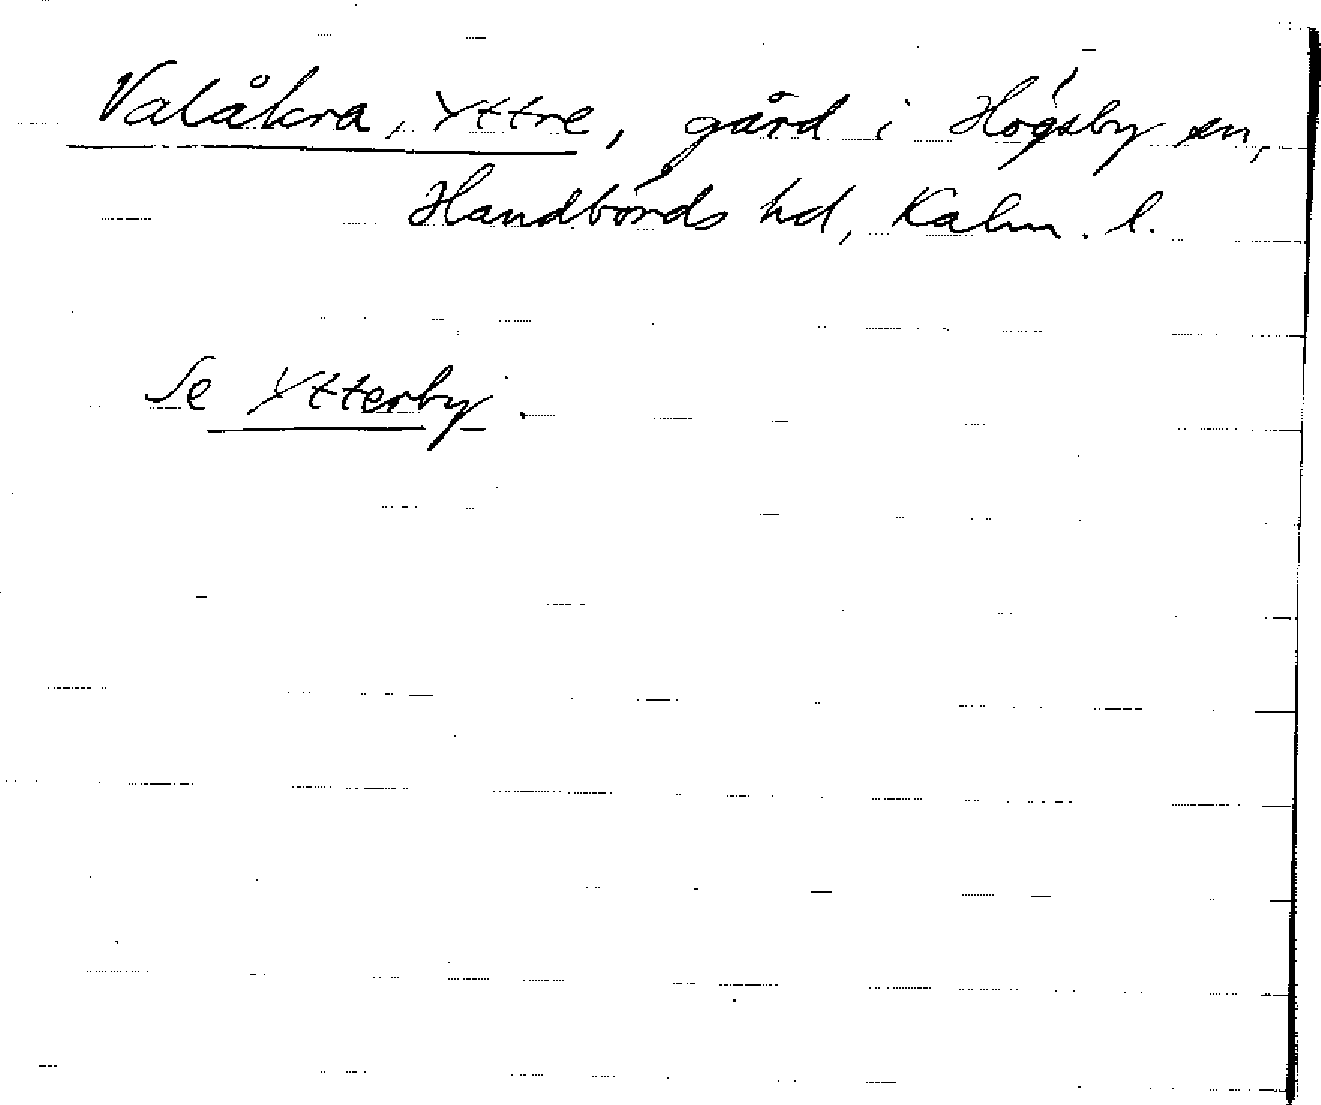 Valåkra, Yttre, gård i Högsby sn,
Handbörds hd, Kalm. l.
Se Ytterby.